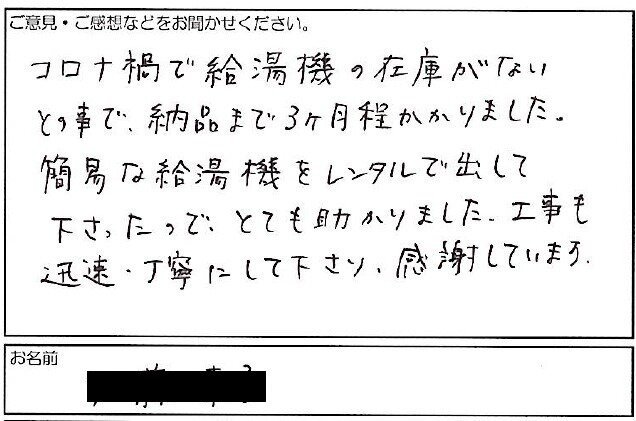 ご意見・ご感想などをお聞かせください。
コロナ禍で給湯機の在庫がない
との事で、納品まで3ヶ月程かかりました。
簡易な給湯機をレンタルで出して
下さったので、とても助かりました。工事も
迅速・丁寧にして下さり、感謝しています。
お名前